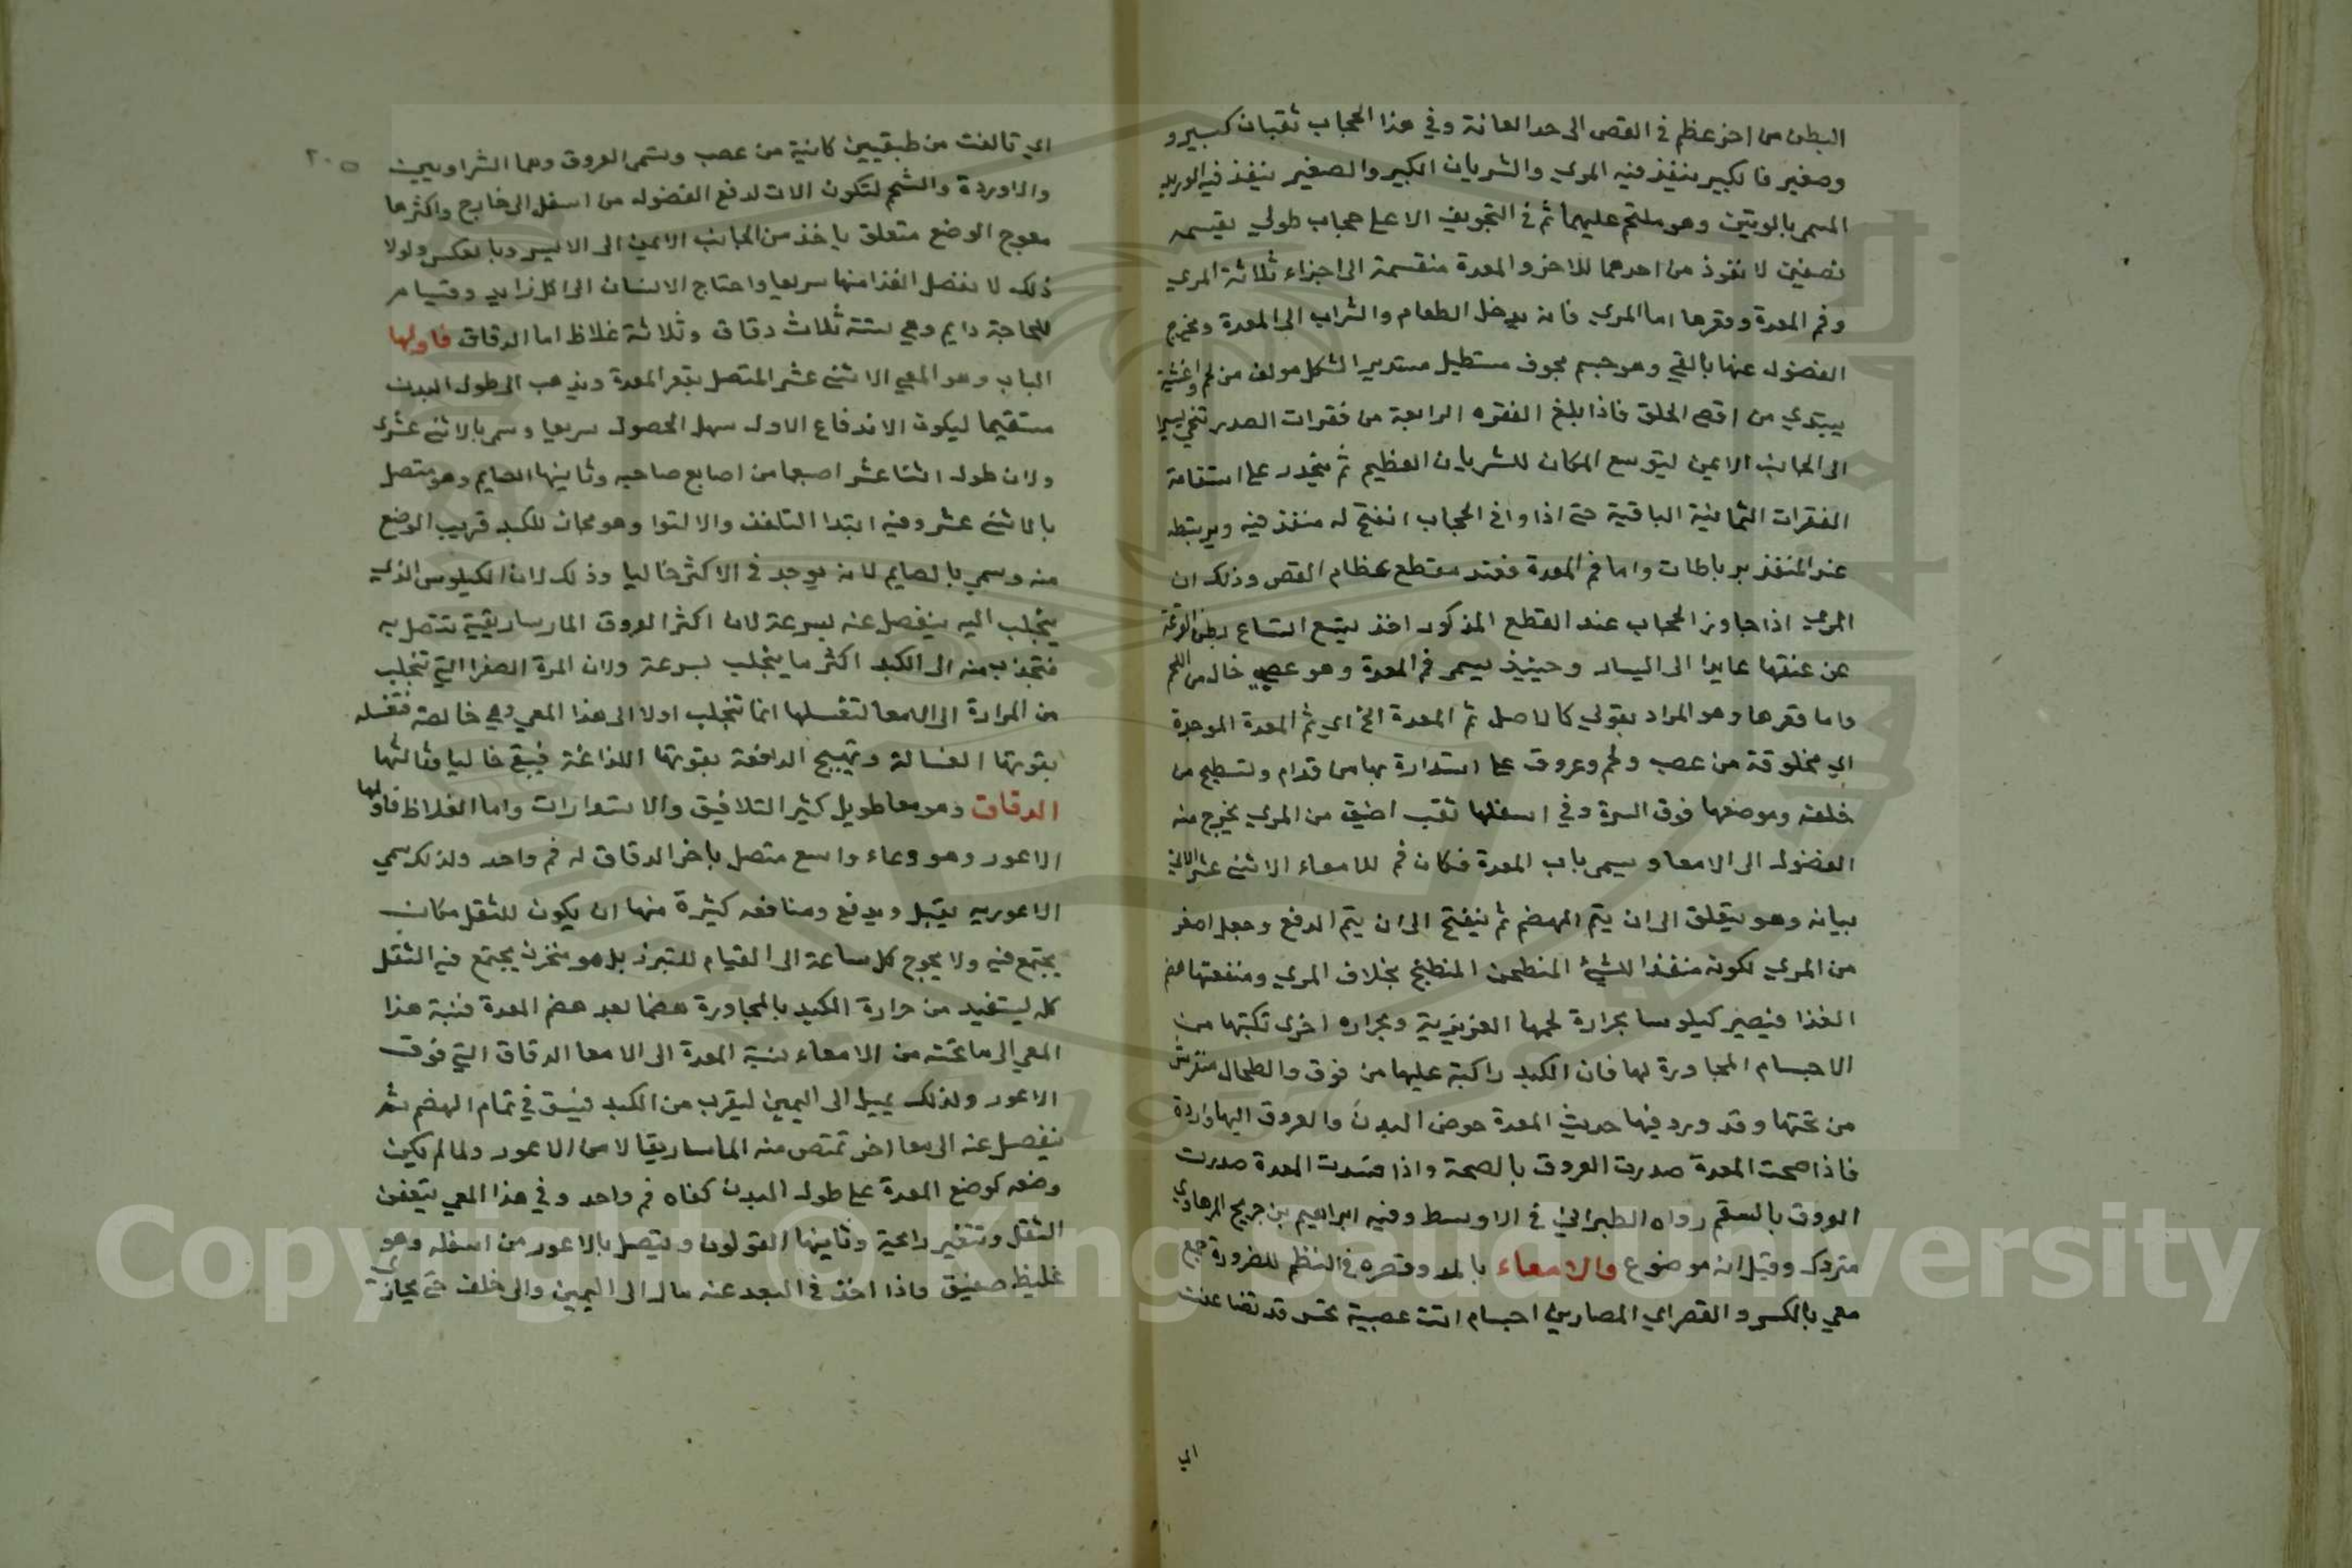 البطن من اخر عظم في القص الى حد العانة وفي هذا الحجاب ثقبان كبير و
وصغير فالكبير ينفذ فيه المري والشريان الكبير والصغير ينفذ فيه الوريد
المسمى بالوتين وهو ملتحم عليهما ثم في التجويف الاعلى حجاب طولي يقسمه
نصفين لا نفوذ من احدهما للاخر والمعدة منقسمة الى اجزاء ثلاثة المري
وفم المعدة وقعرها اما المري فانه يدخل الطعام والشراب الى المعدة ويخرج
الفضول عنها بالقي وهو جسم مجوف مستطيل مستدير الشكل مولف من لحم واغشية
يبتدي من اقصى الحلق فاذا بلغ الفقره الرابعة من فقرات الصدر تنحى يسيرا
الى الجانب الايمن ليتوسع المكان للشريان العظيم ثم ينحدر على استقامة
الفقرات الثمانية الباقية حتى اذا وافى الحجاب انفتح له منفذ فيه ويرتبط
عند المنفذ برباطات واما فم المعدة فعند مقطع عظام القص وذلك ان
المري اذا جاوز الحجاب عند القطع المذكور اخذ يتسع اتساع بطن القرعة
عن عنقها عايدا الى اليسار وحينيذ يسمى فم المعدة وهو عصبي خال من اللحم
واما قعرها وهو المراد بقولي كالاصل ثم المعدة الخ اي ثم المعدة الموجودة
اي مخلوقة من عصب ولحم وعروق على استدارة بها من قدام وتسطيح من
خلفه وموضعها فوق السرة وفي اسفلها ثقب اضيق من المري يخرج منه
الفضول الى الامعا ويسمى باب المعدة فكان فم للامعاء الاثنى عشر الاتي
بيانه وهو يتغلق الى ان يتم الهضم ثم ينفتح الى ان يتم الدفع وجعل اصغر
من المري لكونه منفذا للشيء المنطحن المنطبخ بخلاف المري ومنفعتها هضم
الغذا فيصير كيلوسا بحرارة لحمها الغريزية وبحراره اخرى تكسبها من
الاجسام المجاورة لها فان الكبد راكبة عليها من فوق والطحال منفرش
من تحتها وقد ورد فيها حديث المعدة حوض البدن والعروق اليها واردة
فاذا صحت المعدة صدرت العروق بالصحة واذا فسدت المعدة صدرت
العروق بالسقم رواه الطبراني في الاوسط وفيه ابراهيم بن جريج الرهاوي
متروك وقيل انه موضوع والامعاء بالمد وقصره في النظم للضرورة جمع
معي بالكسر والقصر اي المصارين اجسام اتت عصبية قد تضاعفت
اي
٢٠٥
اي تالفت من طبقيين كاينة من عصب وتسمى العروق وهما الشراويين
والاوردة والشحم لتكون الات لدفع الفضول من اسفل الى خارج واكثرها
معوج الوضع متعلق ياخذ من الجانب الايمن الى الايسر وبالعكس ولولا
ذلك لانفصل الغذا منها سريعا واحتاج الانسان الى اكل زايد وقيام
للحاجة دايم وهي ستة ثلاث دقاق وثلاثة غلاظ اما الدقاق فاولها
الباب وهو المعي الاثنى عشر المتصل بقعر المعدة ويذهب الى طول البدن
مستقيما ليكون الاندفاع الاول سهل الحصول سريعا وسمي بالاثنى عشرى
ولان طوله اثنا عشر اصبعا من اصابع صاحبه وثانيها الصايم وهو متصل
بالاثنى عشر وفيه ابتدا التلفف والالتوا وهو محان للكبد قريب الوضع
منه وسمي بالصايم لانه يوجد في الاكثر خاليا وذلك لان الكيلوس الذي
ينجلب اليه ينفصل عنه بسرعة لان اكثر العروق الماساريقية تتصل به
فتجذب منه الى الكبد اكثر ما ينجلب بسرعة ولان المرة الصفرا التي تنجلب
من المرارة الى الامعا لتغسلها انما تنجلب اولا الى هذا المعي وهي خالصة فتغسله
بقوتها الغسالة وتهيج الدافعة بقوتها اللذاعة فيبقى خاليا وثالثها
الدقاق وهو معا طويل كثير التلافيق والاستدارات واما الغلاظ فاولها
الاعور وهو وعاء واسع متصل باخر الدقاق له فم واحد ولذلك سمي
الاعور به يقبل ويدفع ومنافعه كثيرة منها ان يكون للثفل مكان
يجتمع فيه ولا يحوج كل ساعة الى القيام للتبرز بل هو مخزن يجتمع فيه الثفل
كله ليستفيد من حرارة الكبد بالمجاورة هضما بعد هضم المعدة فنسبة هذا
المعي الى ما تحته من الامعاء نسبة المعدة الى الامعا الدقاق التي فوق
الاعور ولذلك يميل الى اليمين ليقرب من الكبد فيسبق في تمام الهضم ثم
ينفصل عنه الى معا اخر تمتص منه الماساريقا لا من الاعور ولما لم يكن
وضعه كوضع المعدة على طول البدن كفاه فم واحد وفي هذا المعي يتعفن
الثفل وتتغير رائحته وثانيها القولون ويتصل بالاعور من اسفله وهو
غليظ صفيق واذا اخذ في البعد عنه مال الى اليمين والى خلف حتى يحاذي
Copyright © King Saud University
1957